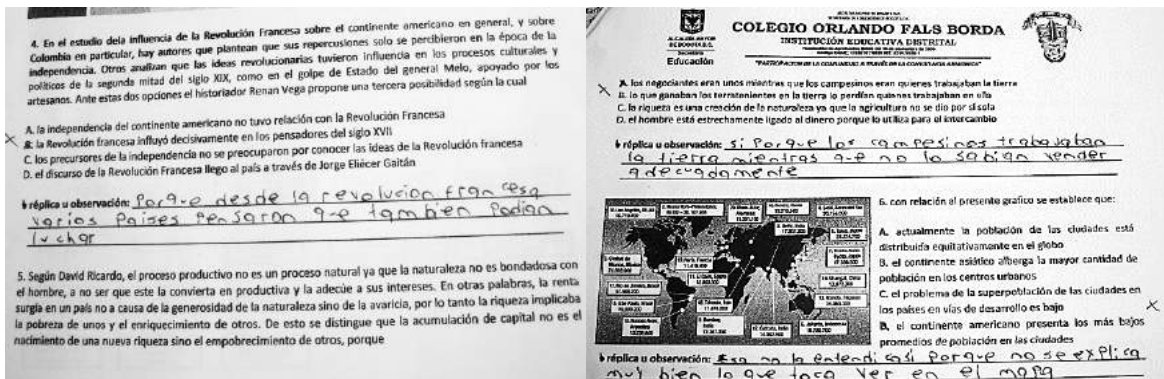 4. En el estudio dela influencia de la Revolución Francesa sobre el continente americano en general, y sobre
Colombia en particular, hay autores que plantean que sus repercusiones solo se percibieron en la época de la
independencia. Otros analizan que las ideas revolucionarias tuvieron influencia en los procesos culturales y
políticos de la segunda mitad del siglo XIX, como en el golpe de Estado del general Melo, apoyado por los
artesanos. Ante estas dos opciones el historiador Renan Vega propone una tercera posibilidad según la cual
A. la independencia del continente americano no tuvo relación con la Revolución Francesa
B. la Revolución francesa influyó decisivamente en los pensadores del siglo XVII
C. los precursores de la independencia no se preocuparon por conocer las ideas de la Revolución francesa
D. el discurso de la Revolución Francesa llego al país a través de Jorge Eliécer Gaitán
réplica u observación: Porque desde la revolucion francesa
varios Paises Pensaron que tambien Podian
luchar
5. Según David Ricardo, el proceso productivo no es un proceso natural ya que la naturaleza no es bondadosa con
el hombre, a no ser que este la convierta en productiva y la adecúe a sus intereses. En otras palabras, la renta
surgía en un país no a causa de la generosidad de la naturaleza sino de la avaricia, por lo tanto la riqueza implicaba
la pobreza de unos y el enriquecimiento de otros. De esto se distingue que la acumulación de capital no es el
nacimiento de una nueva riqueza sino el empobrecimiento de otros, porque
Educación
COLEGIO ORLANDO FALS BORDA
INSTITUCIÓN EDUCATIVA DISTRITAL
A. los negociantes eran unos mientras que los campesinos eran quienes trabajaban la tierra
B. lo que ganaban los terratenientes en la tierra lo perdían quienes trabajaban en ella
C. la riqueza es una creación de la naturaleza ya que la agricultura no se dio por si sola
D. el hombre está estrechamente ligado al dinero porque lo utiliza para el intercambio
réplica u observación: si Porque los campesinos trabajaban
la tierra mientras que no la sabian vender
adecuadamente
6. con relación al presente grafico se establece que:
A. actualmente la población de las ciudades está
distribuida equitativamente en el globo
B. el continente asiático alberga la mayor cantidad de
población en los centros urbanos
C. el problema de la superpoblación de las ciudades en
los países en vías de desarrollo es bajo
D. el continente americano presenta los más bajos
promedios de población en las ciudades
réplica u observación: Esa no la entendi casi Porque no se explica
muy bien lo que toca ver en el mapa